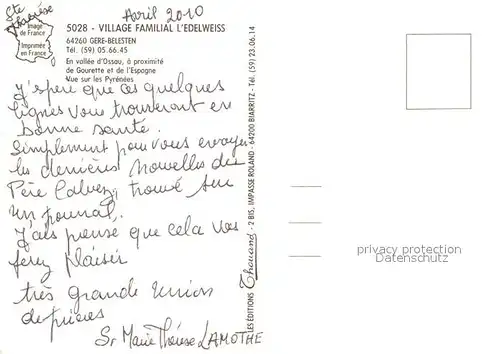 Ste
Thérèse
Avril 2010
Image
de France
Imprimée
en France
5028 - VILLAGE FAMILIAL L'EDELWEISS
64260 GERE-BELESTEN
Tél. (59) 05.66.45
En vallée d'Ossau, à proximité
de Gourette et de l'Espagne
Vue sur les Pyrénées
J'spère que ces quelques
lignes vous trouveront en
bonne santé.
Simplement pour vous envoyer
les dernières nouvelles du
Père Calvez, trouvé sur
un journal.
J'ais pensé que cela vos
ferez plaisir
très grande union
de prières
Sr Marie Thérèse LAMOTHE
LES ÉDITIONS Thouand - 2 BIS, IMPASSE ROLAND - 64200 BIARRITZ - Tél. (59) 23.06.14
privacy protection
Datenschutz